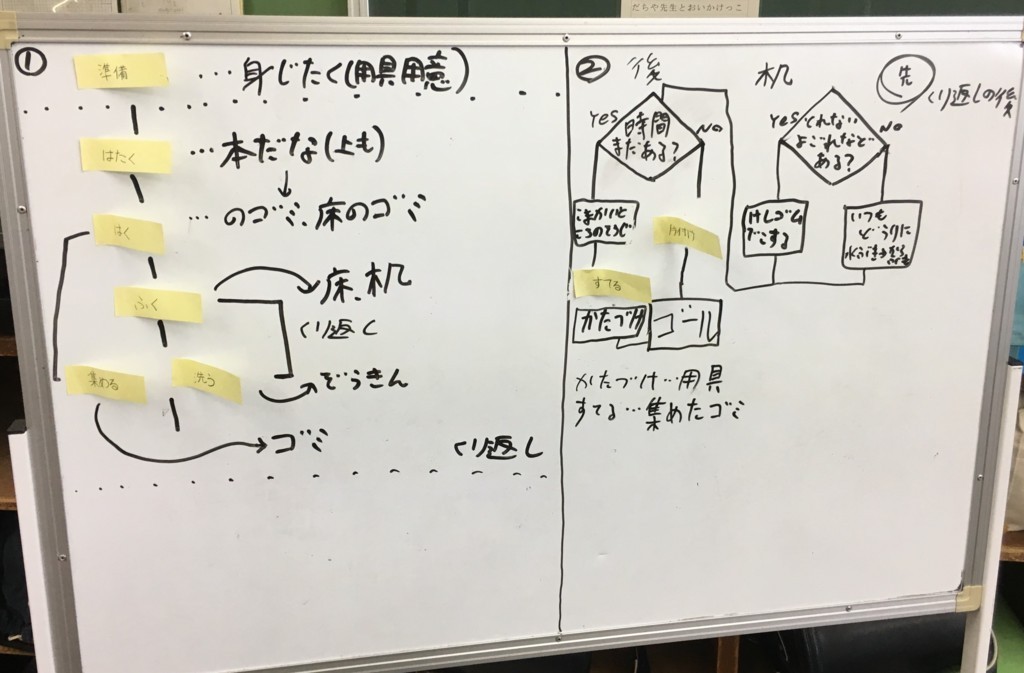 だちや先生とおいかけっこ
①
準備
…身じたく(用具用意)
はたく
…本だな(上も)
はく
…のゴミ、床のゴミ
ふく
床、机
くり返し
集める
洗う
ぞうきん
ゴミ
くり返し
②
後
Yes
時間
まだある?
No
こまかいと
ころのそうじ
すてる
かたづけ
ゴール
かたづけ…用具
すてる…集めたゴミ
机
先
くり返しの後
Yes
とれない
よごれなど
ある?
No
けしゴム
でこする
いつも
どうりに